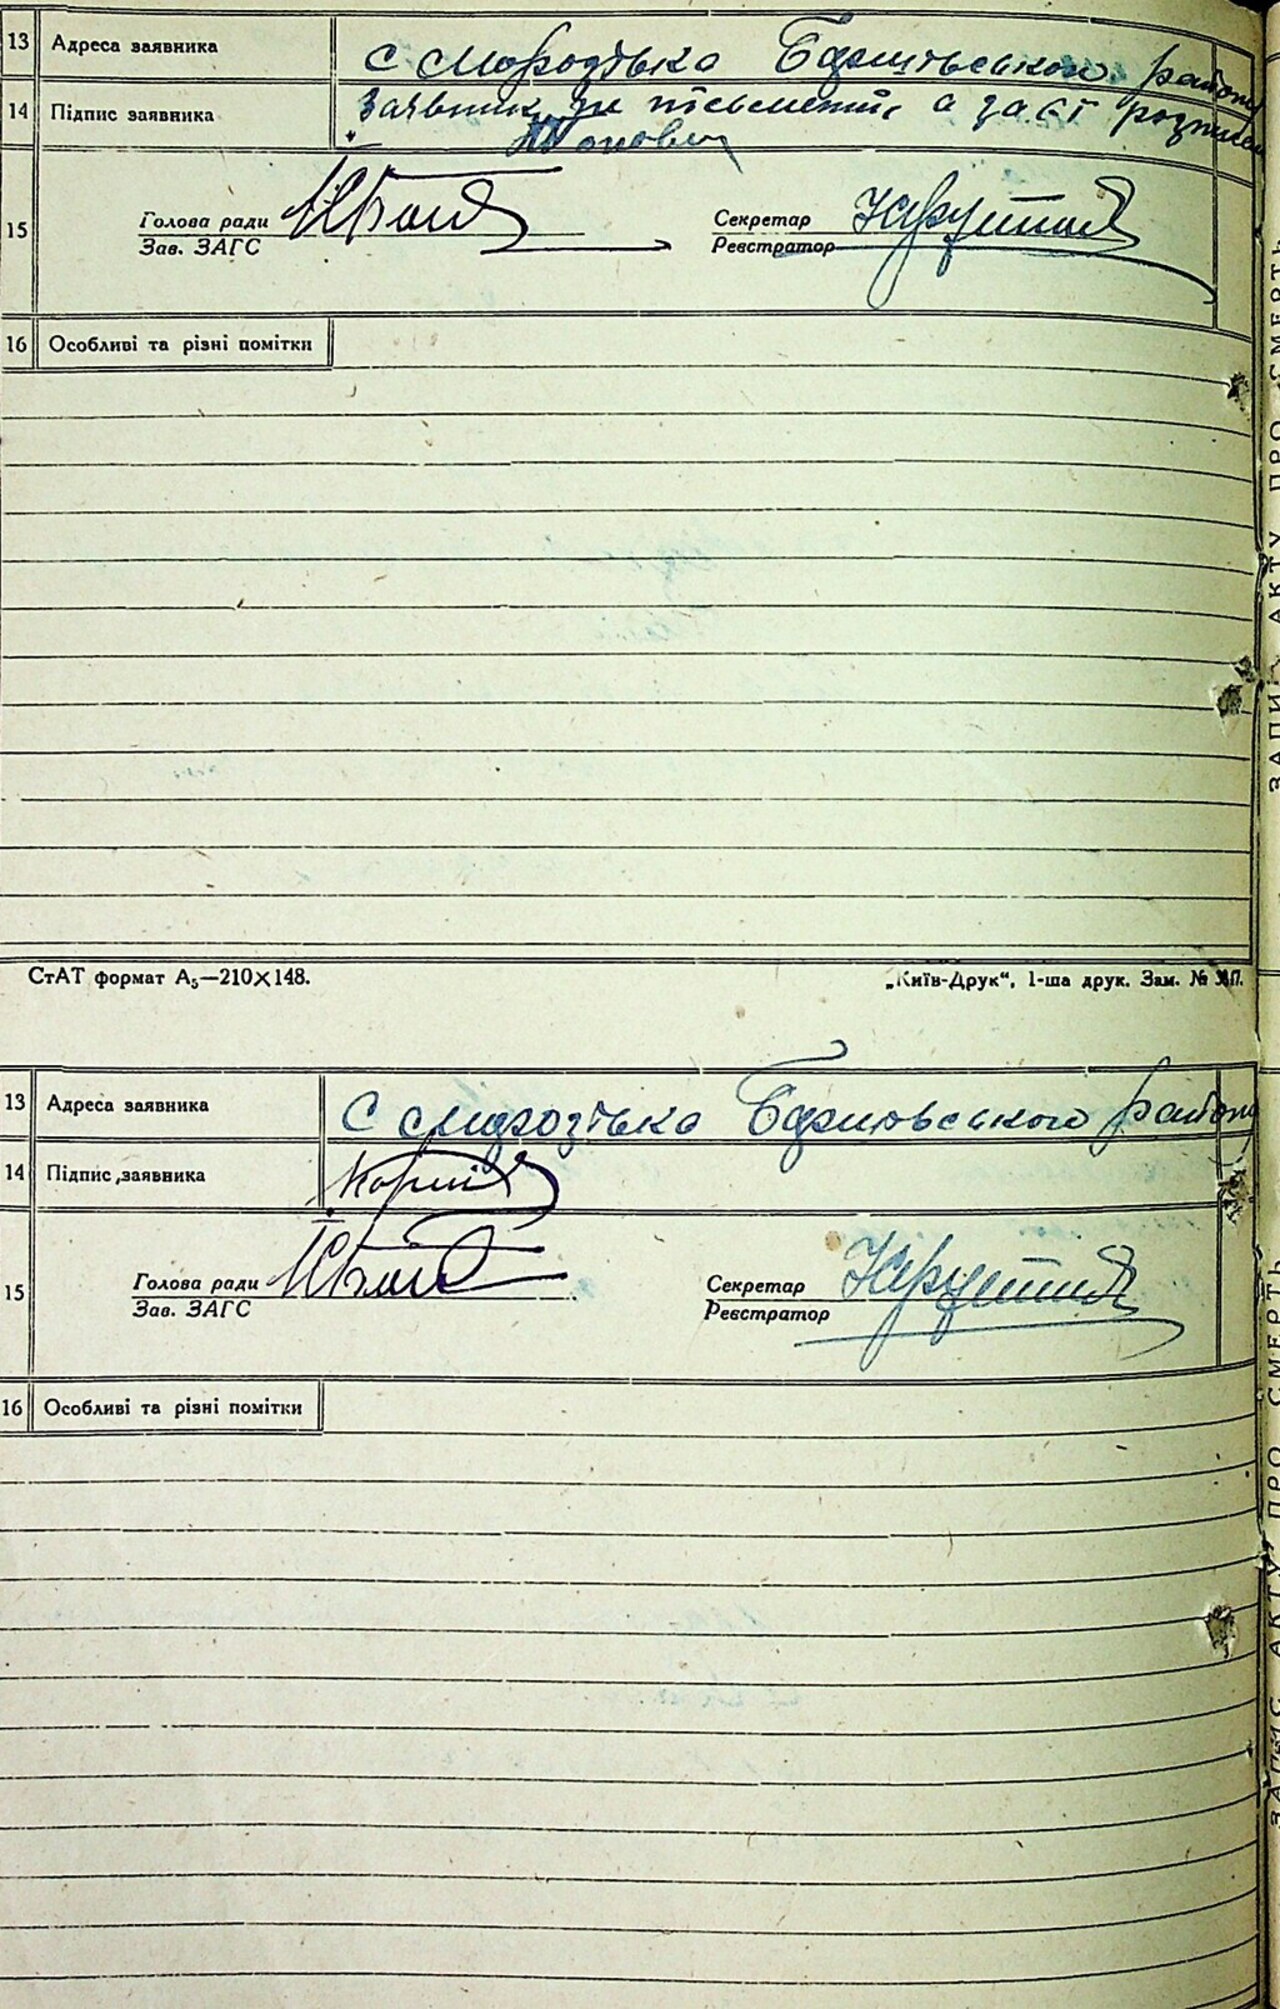 13 Адреса заявника с Морозівка Баришівського району
14 Підпис заявника Заявник не письменний а за неї розписавсь
15 Голова ради
Зав. ЗАГС
Секретар
Реєстратор
16 Особливі та різні помітки
СтАТ формат А₅—210×148. „Київ-Друк“, 1-ша друк. Зам. №
13 Адреса заявника С Морозівка Баришовського району
14 Підпис заявника
15 Голова ради
Зав. ЗАГС
Секретар
Реєстратор
16 Особливі та різні помітки
ЗАПИС АКТУ ПРО СМЕРТЬ
ЗАПИС АКТУ ПРО СМЕРТЬ